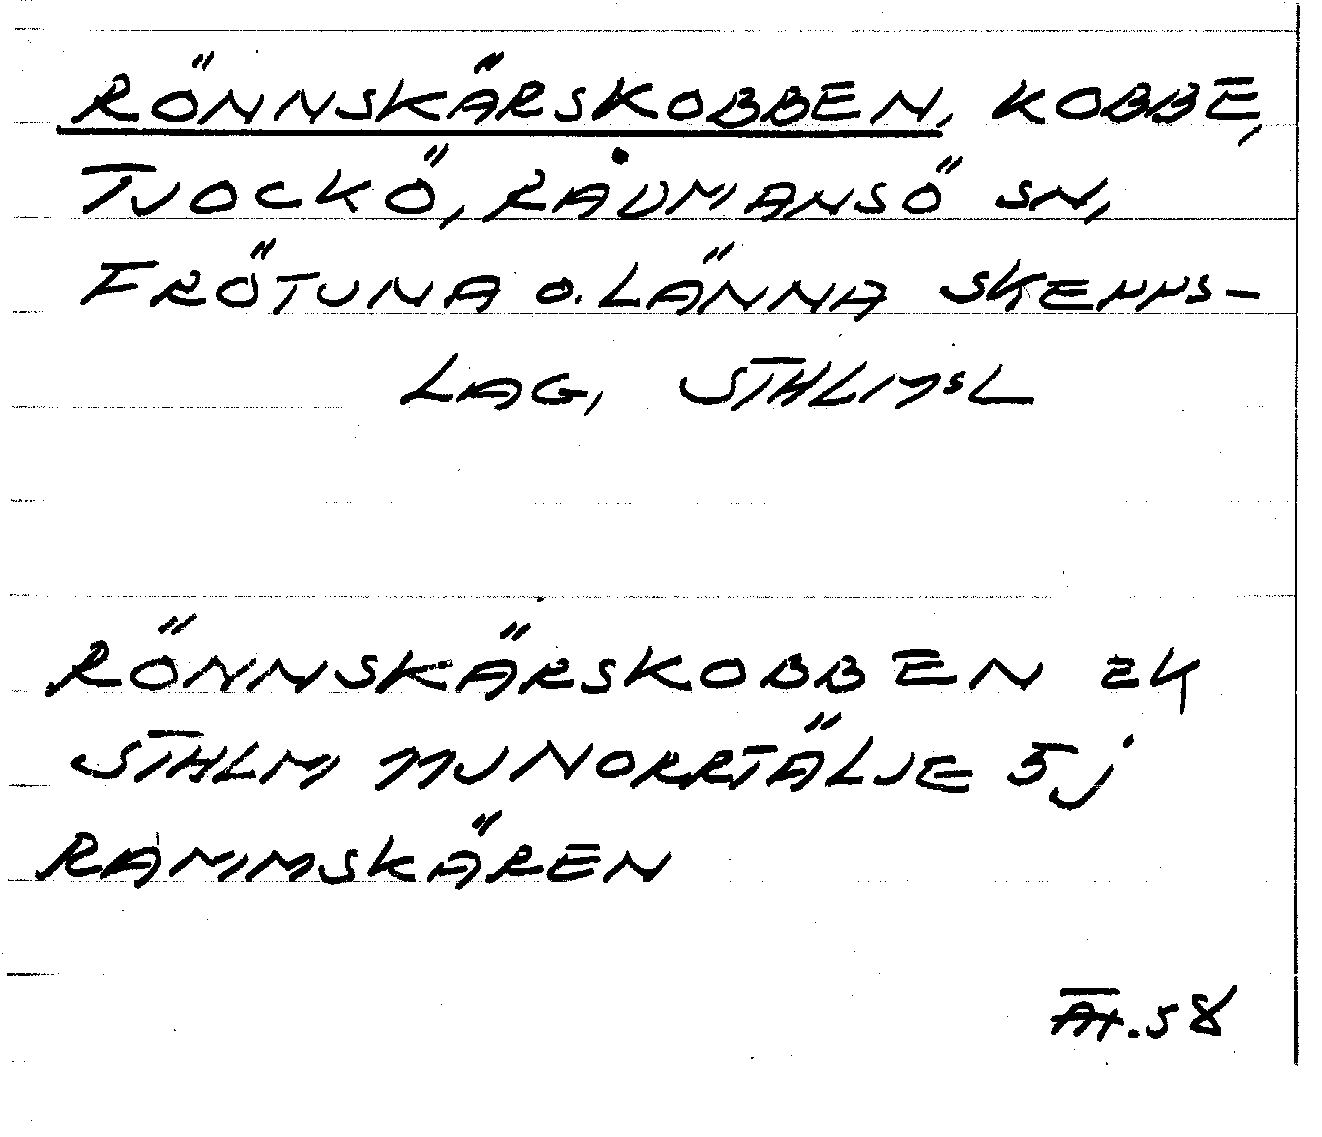 RÖNNSKÄRSKOBBEN, KOBBE,
TJOCKÖ, RÅDMANSÖ SN,
FRÖTUNA O. LÄNNA SKEPPS-
LAG, STHLMSL
RÖNNSKÄRSKOBBEN EK
STHLM NJ NORRTÄLJE 5j
RAMMSKÄREN
.58